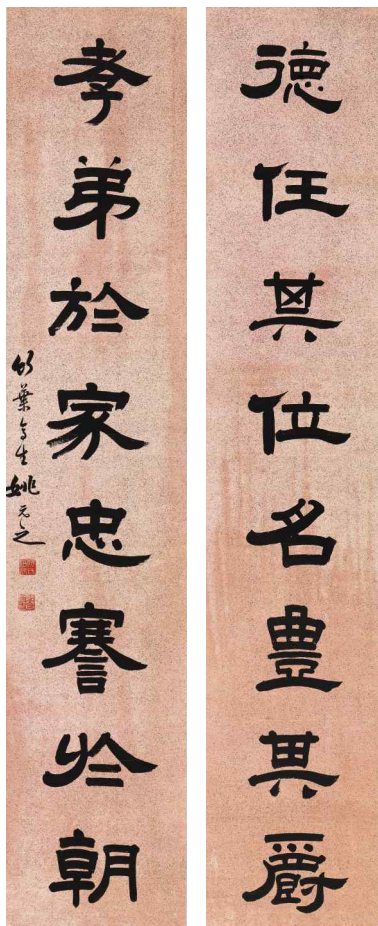 德任其位名豊其爵
孝弟於家忠謇於朝
竹葉亭生姚元之